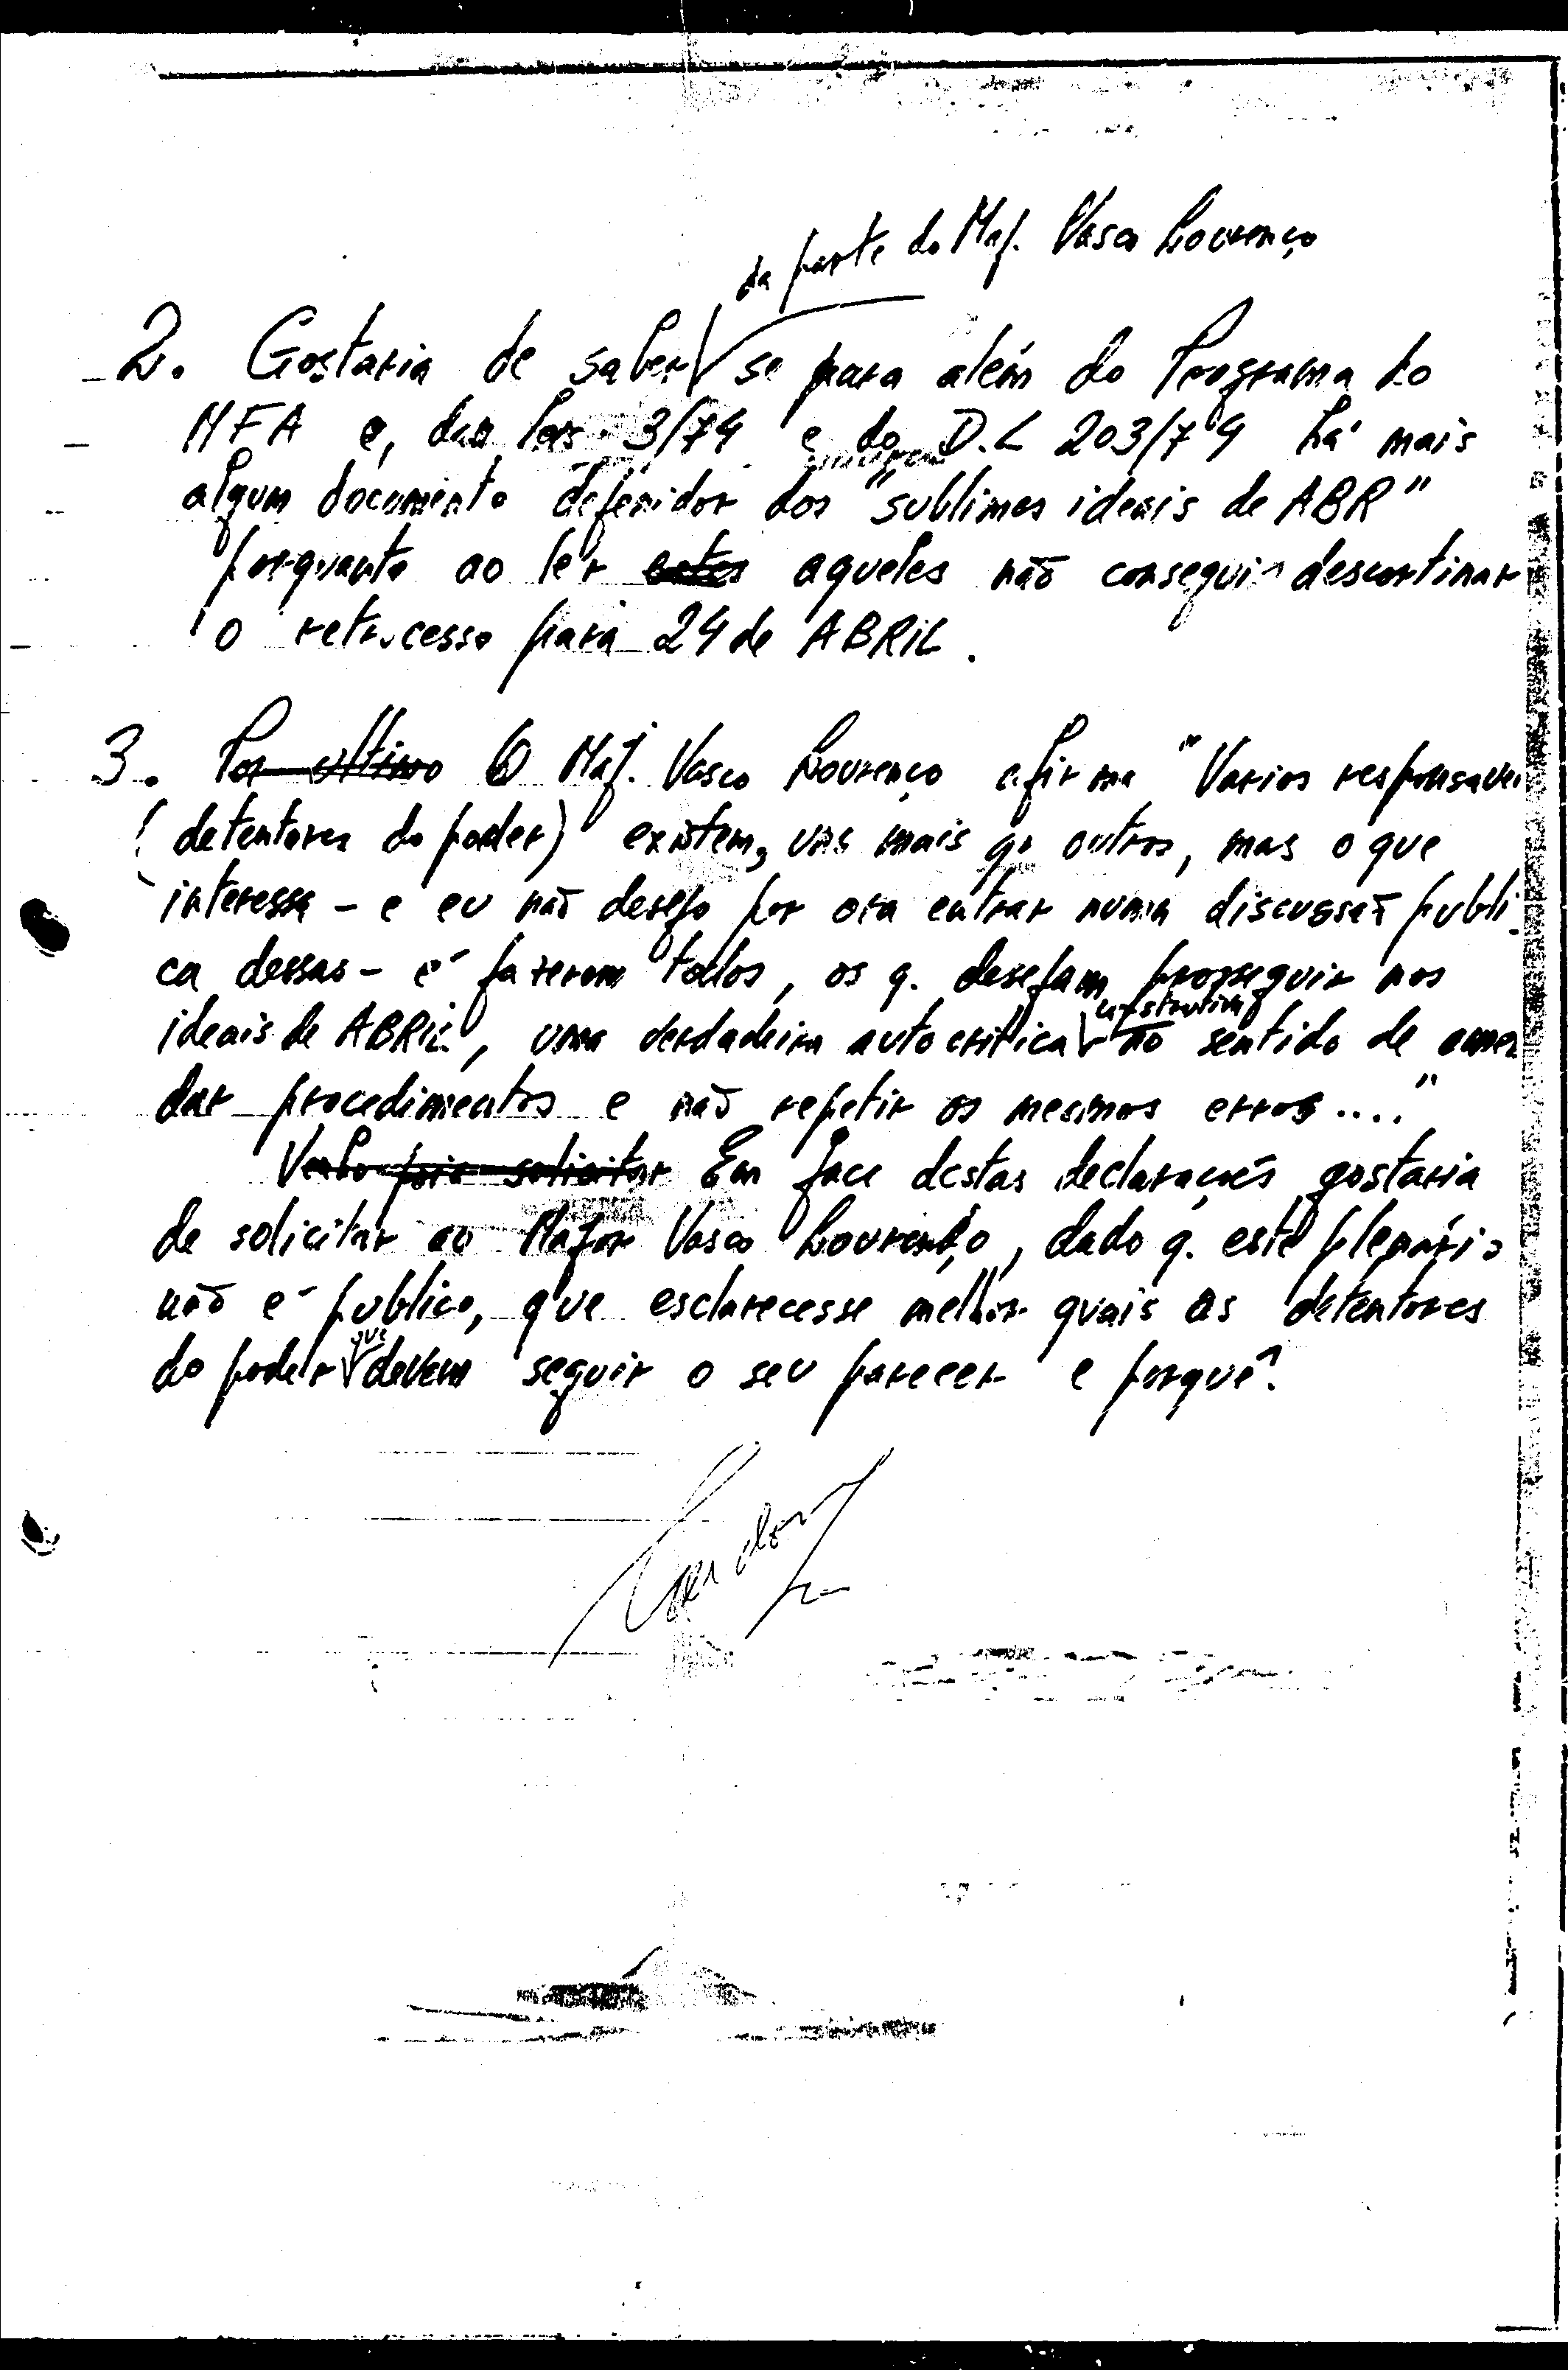 da parte do Maj. Vasco Lourenço
2. Gostaria de saber se para além do Programa do
MFA e, das leis 3/74 e do D.L 203/74 há mais
algum documento definidor dos "sublimes ideais de ABR"
porquanto ao ler estes aqueles não consegui descortinar
o retrocesso para 24 de ABRIL.
3. Por ultimo O Maj. Vasco Lourenço afirma "Varios responsavei
(detentores do poder) existem, uns mais q. outros, mas o que
interessa - e eu não desejo por ora entrar numa discussão publi-
ca dessas - é fazerem todos, os q. desejam prosseguir nos
construtiva
ideais de ABRIL, uma verdadeira autocritica no sentido de emen
dar procedimentos e não repetir os mesmos erros ...."
Venho pois solicitar Em face destas declarações gostaria
de solicitar ao Major Vasco Lourenço, dado q. este plenário
não é publico, que esclarecesse melhor quais os detentores
que
do poder devem seguir o seu parecer e porquê?